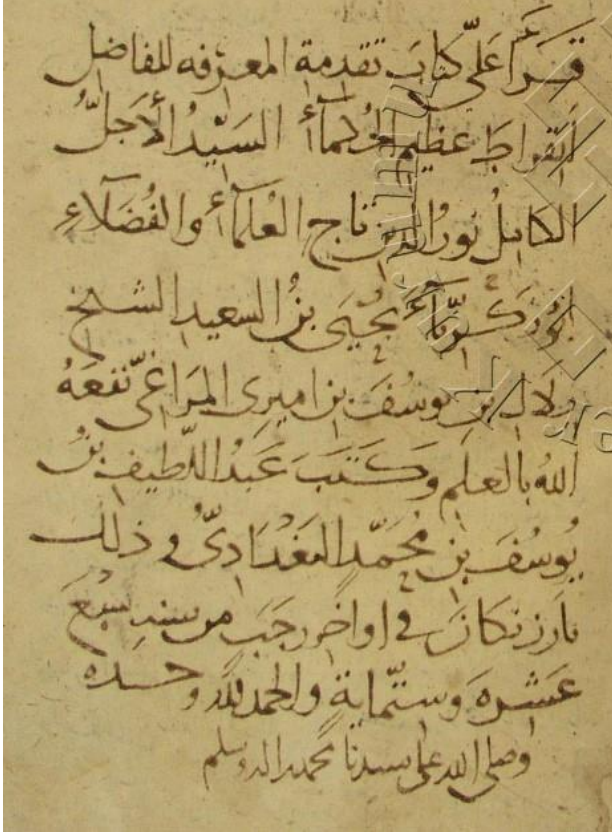 قرأ علىّ كتاب تقدمة المعرفه للفاضل
ابقراط عظيم الحكمآء السيّد الأجلّ
الكامل نور الدين تاج العلمآء والفضلآء
ابو زكريّآء يحيى بن السعيد الشيخ
بلال بن يوسف بن اميرى المراغىّ نفعه
الله بالعلم وكتب عبد اللطيف بن
يوسف بن محمّد البغداذىّ وذلك
بارزنكان فى اواخر رجب من سنه سبع
عشره وستّماية والحمد لله وحده
وصلى الله على سيدنا محمد واله وسلم